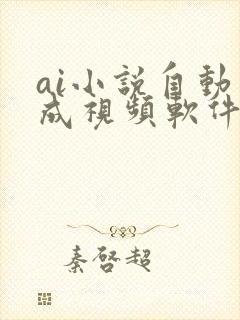 ai小説自動
成視頻軟件
秦啓超